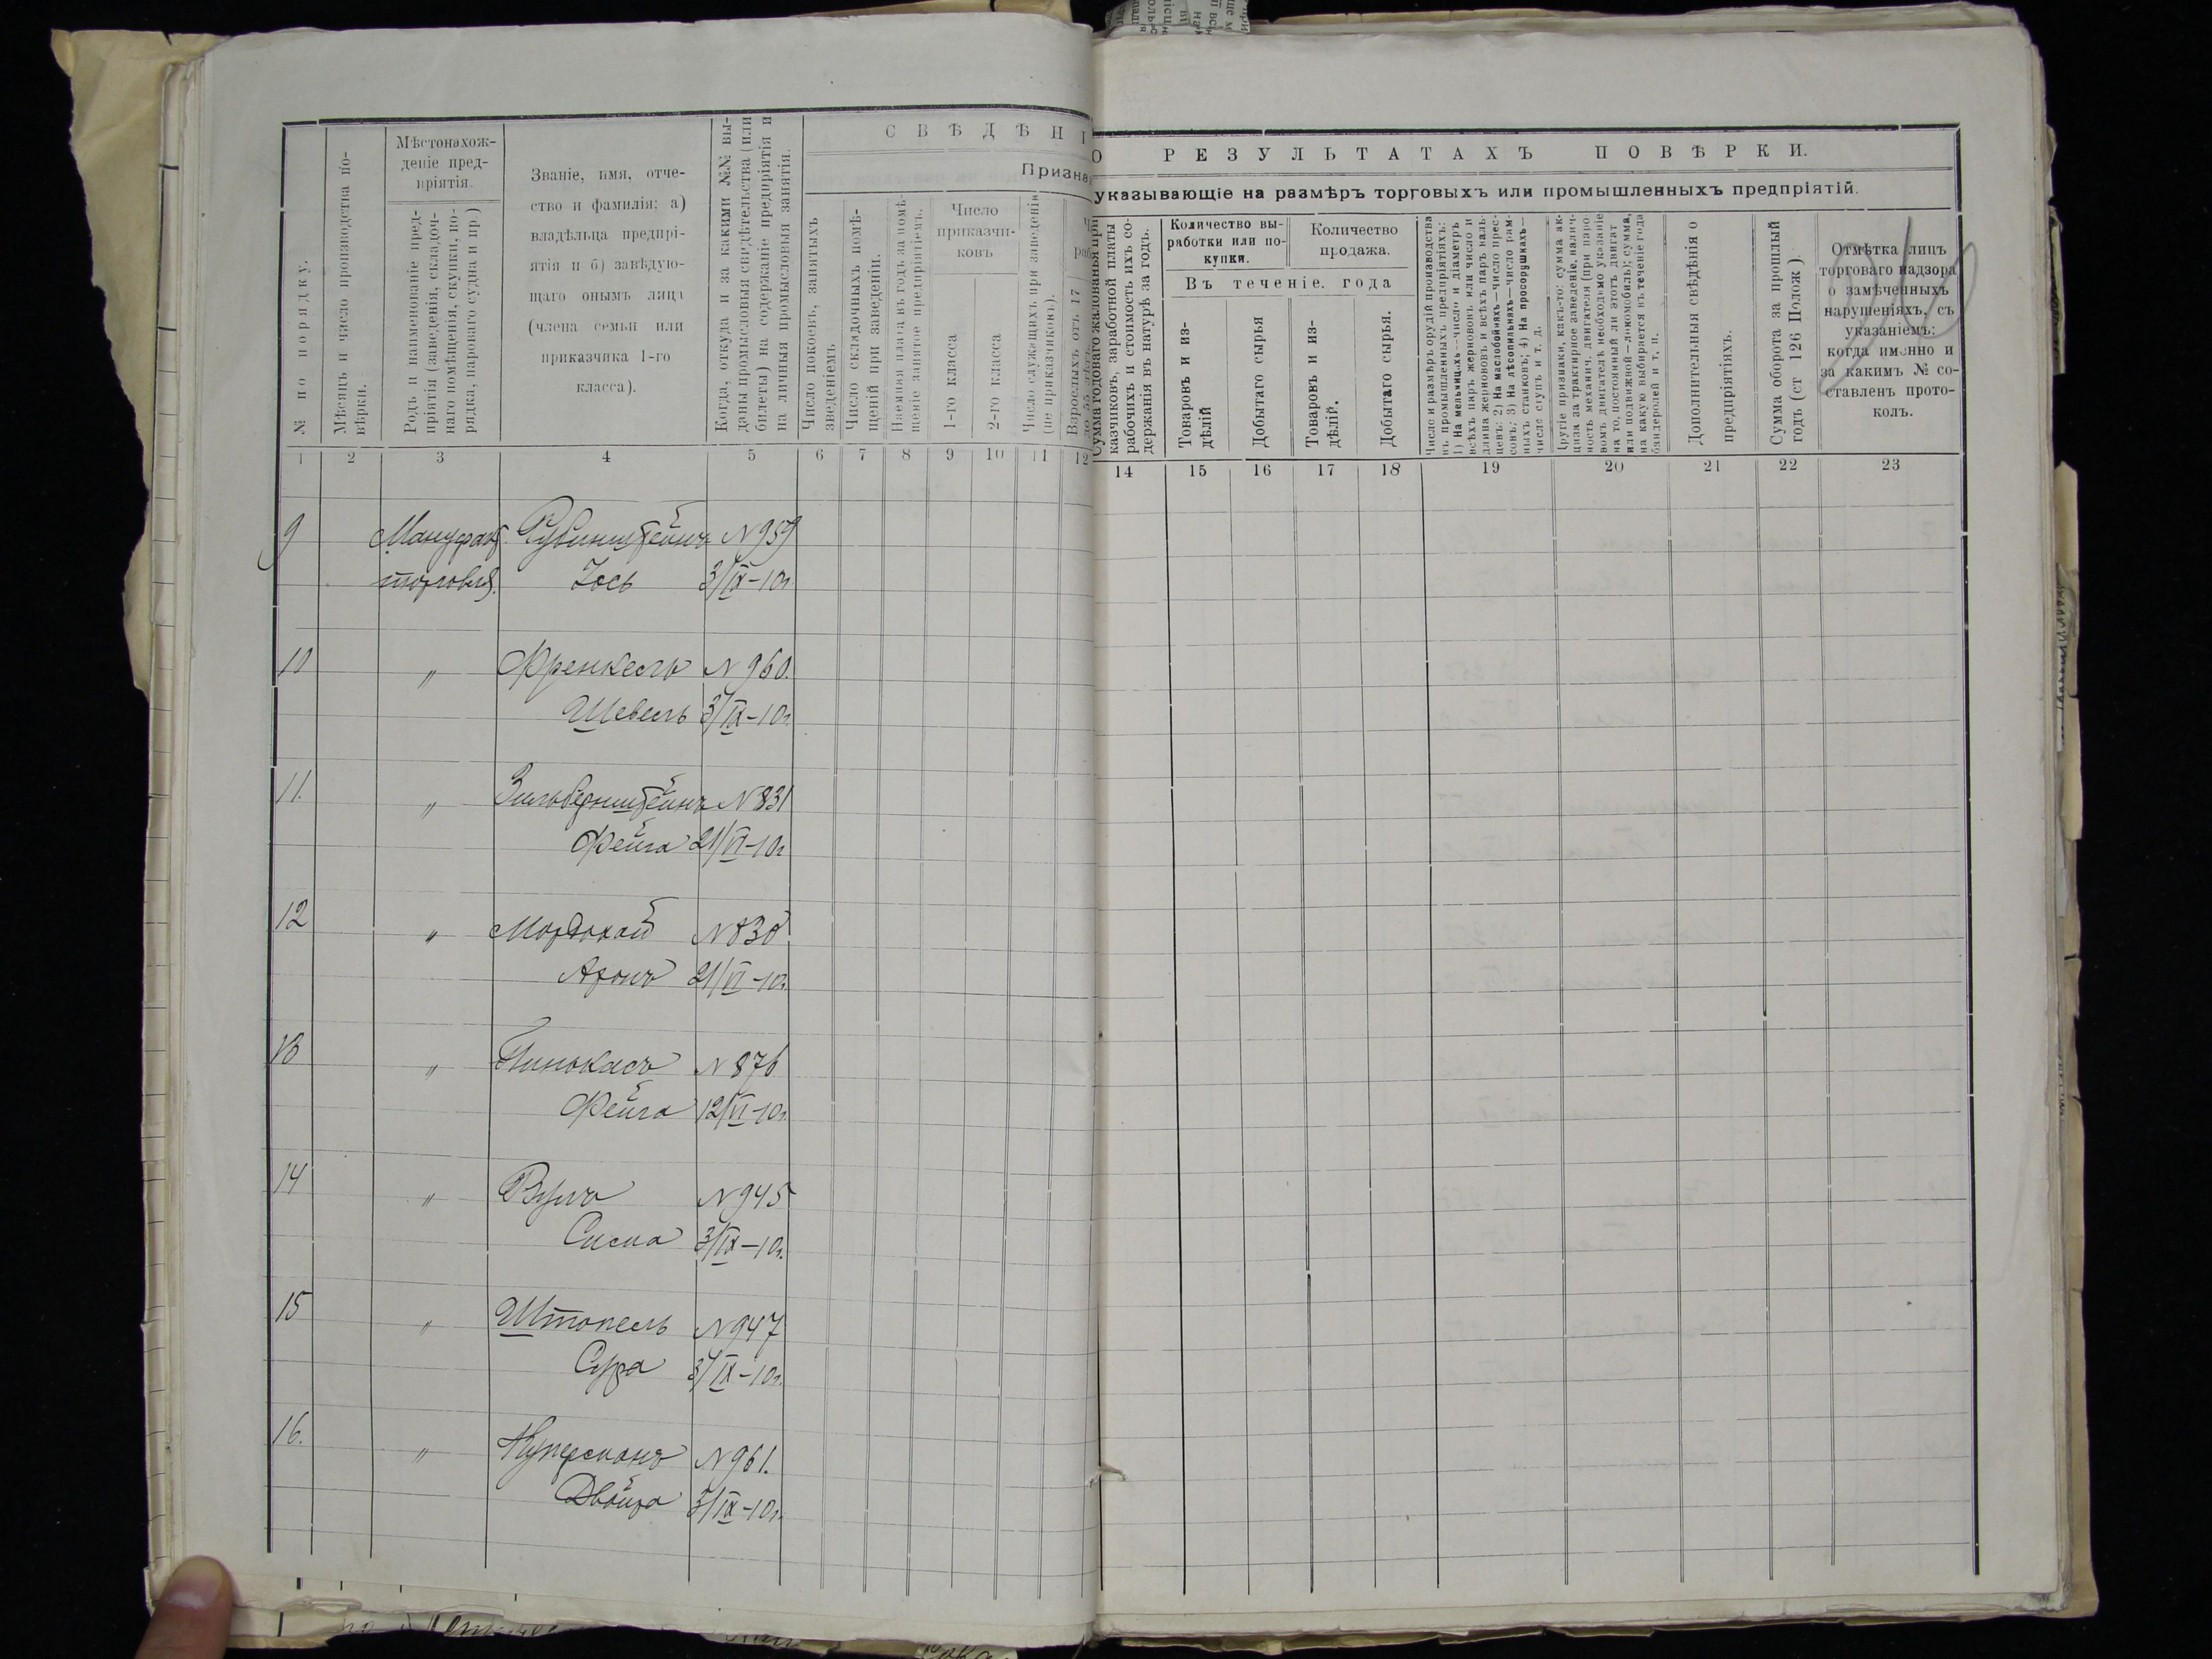 СВѢДѢНІ
О РЕЗУЛЬТАТАХЪ ПОВѢРКИ.
Призна
указывающіе на размѣръ торговыхъ или промышленныхъ предпріятій.
№ по порядку.
Мѣсяцъ и число производства по-
вѣрки.
Мѣстонахож-
деніе пред-
пріятія.
Родъ и наименованіе пред-
пріятія (заведенія, складоч-
наго помѣщенія, скупки, по-
рядка, пароваго судна и пр.)
Званіе, имя, отче-
ство и фамилія: а)
владѣльца предпрі-
ятія и б) завѣдую-
щаго онымъ лица
(члена семьи или
приказчика 1-го
класса).
Когда, откуда и за какими №№ вы-
даны промысловыя свидѣтельства (или
билеты) на содержаніе предпріятія и
на личныя промысловыя занятія.
Число покоевъ, занятыхъ
зведеніемъ
Число складочныхъ помѣ-
щеній при заведеніи.
Наемная плата въ годъ за помѣ-
щеніе занятое предпріятіемъ.
Число
приказчи-
ковъ
1-го класса
2-го класса
Число служащихъ при заведеніи
(не приказчиковъ).
Ч
раб
Взрослыхъ отъ 17
до 55 лѣтъ.
Сумма годоваго жалованья при
казчиковъ, заработной платы
рабочихъ и стоимость ихъ со-
держанія въ натурѣ за годъ.
Количество вы-
работки или по-
купки.
Количество
продажа.
Въ теченіе. года
Товаровъ и из-
дѣлій
Добытаго сырья
Товаровъ и из-
дѣлій.
Добытаго сырья.
Число и размѣръ орудій производства
въ промышленныхъ предпріятіяхъ:
1) На мельницахъ—число и діаметръ
всѣхъ паръ жерновонъ или число и
длина жерновонъ и всѣхъ паръ валь-
цевъ: 2) На маслобойняхъ—число прес-
совъ; 3) На лѣсопильняхъ—число рам-
ныхъ станковъ; 4) На просорушкахъ—
число ступъ и т. д.
Другіе признаки, какъ-то: сумма ак-
циза за трактирное заведеніе, налич-
ность механич. двигателя (при паро-
вомъ двигателѣ необходимо указаніе
на то, постоянный ли этотъ двигат
или подвижной—локомобиль); сумма,
на какую выбирается въ теченіе года
бандеролей и т. п.
Дополнительныя свѣдѣнія о
предпріятіяхъ.
Сумма оборота за прошлый
годъ (ст 126 Полож ).
Отмѣтка лицъ
торговаго надзора
о замѣченныхъ
нарушеніяхъ, съ
указаніемъ:
когда именно и
за какимъ № со-
ставленъ прото-
колъ.
1 2 3 4 5 6 7 8 9 10 11 12 14 15 16 17 18 19 20 21 22 23
9 Мануфакт. Рубинштейнъ N 959
торговля. Іось 3/IX-10г
10 " Френкель N 960.
Шевель 3/IX-10г.
11. " Зильберштейнъ N 831
Фейга 21/VI-10г
12 " Мордохай N 830
Аронъ 21/VI-10г.
13 " Пинькасъ N 876
Фейга 12/VI-10г.
14 " N 945
3/IX-10г.
15 " Штопель N 947
Сура 3/IX-10г.
16. " Куперманъ N 961.
Двойра 3/IX-10г.